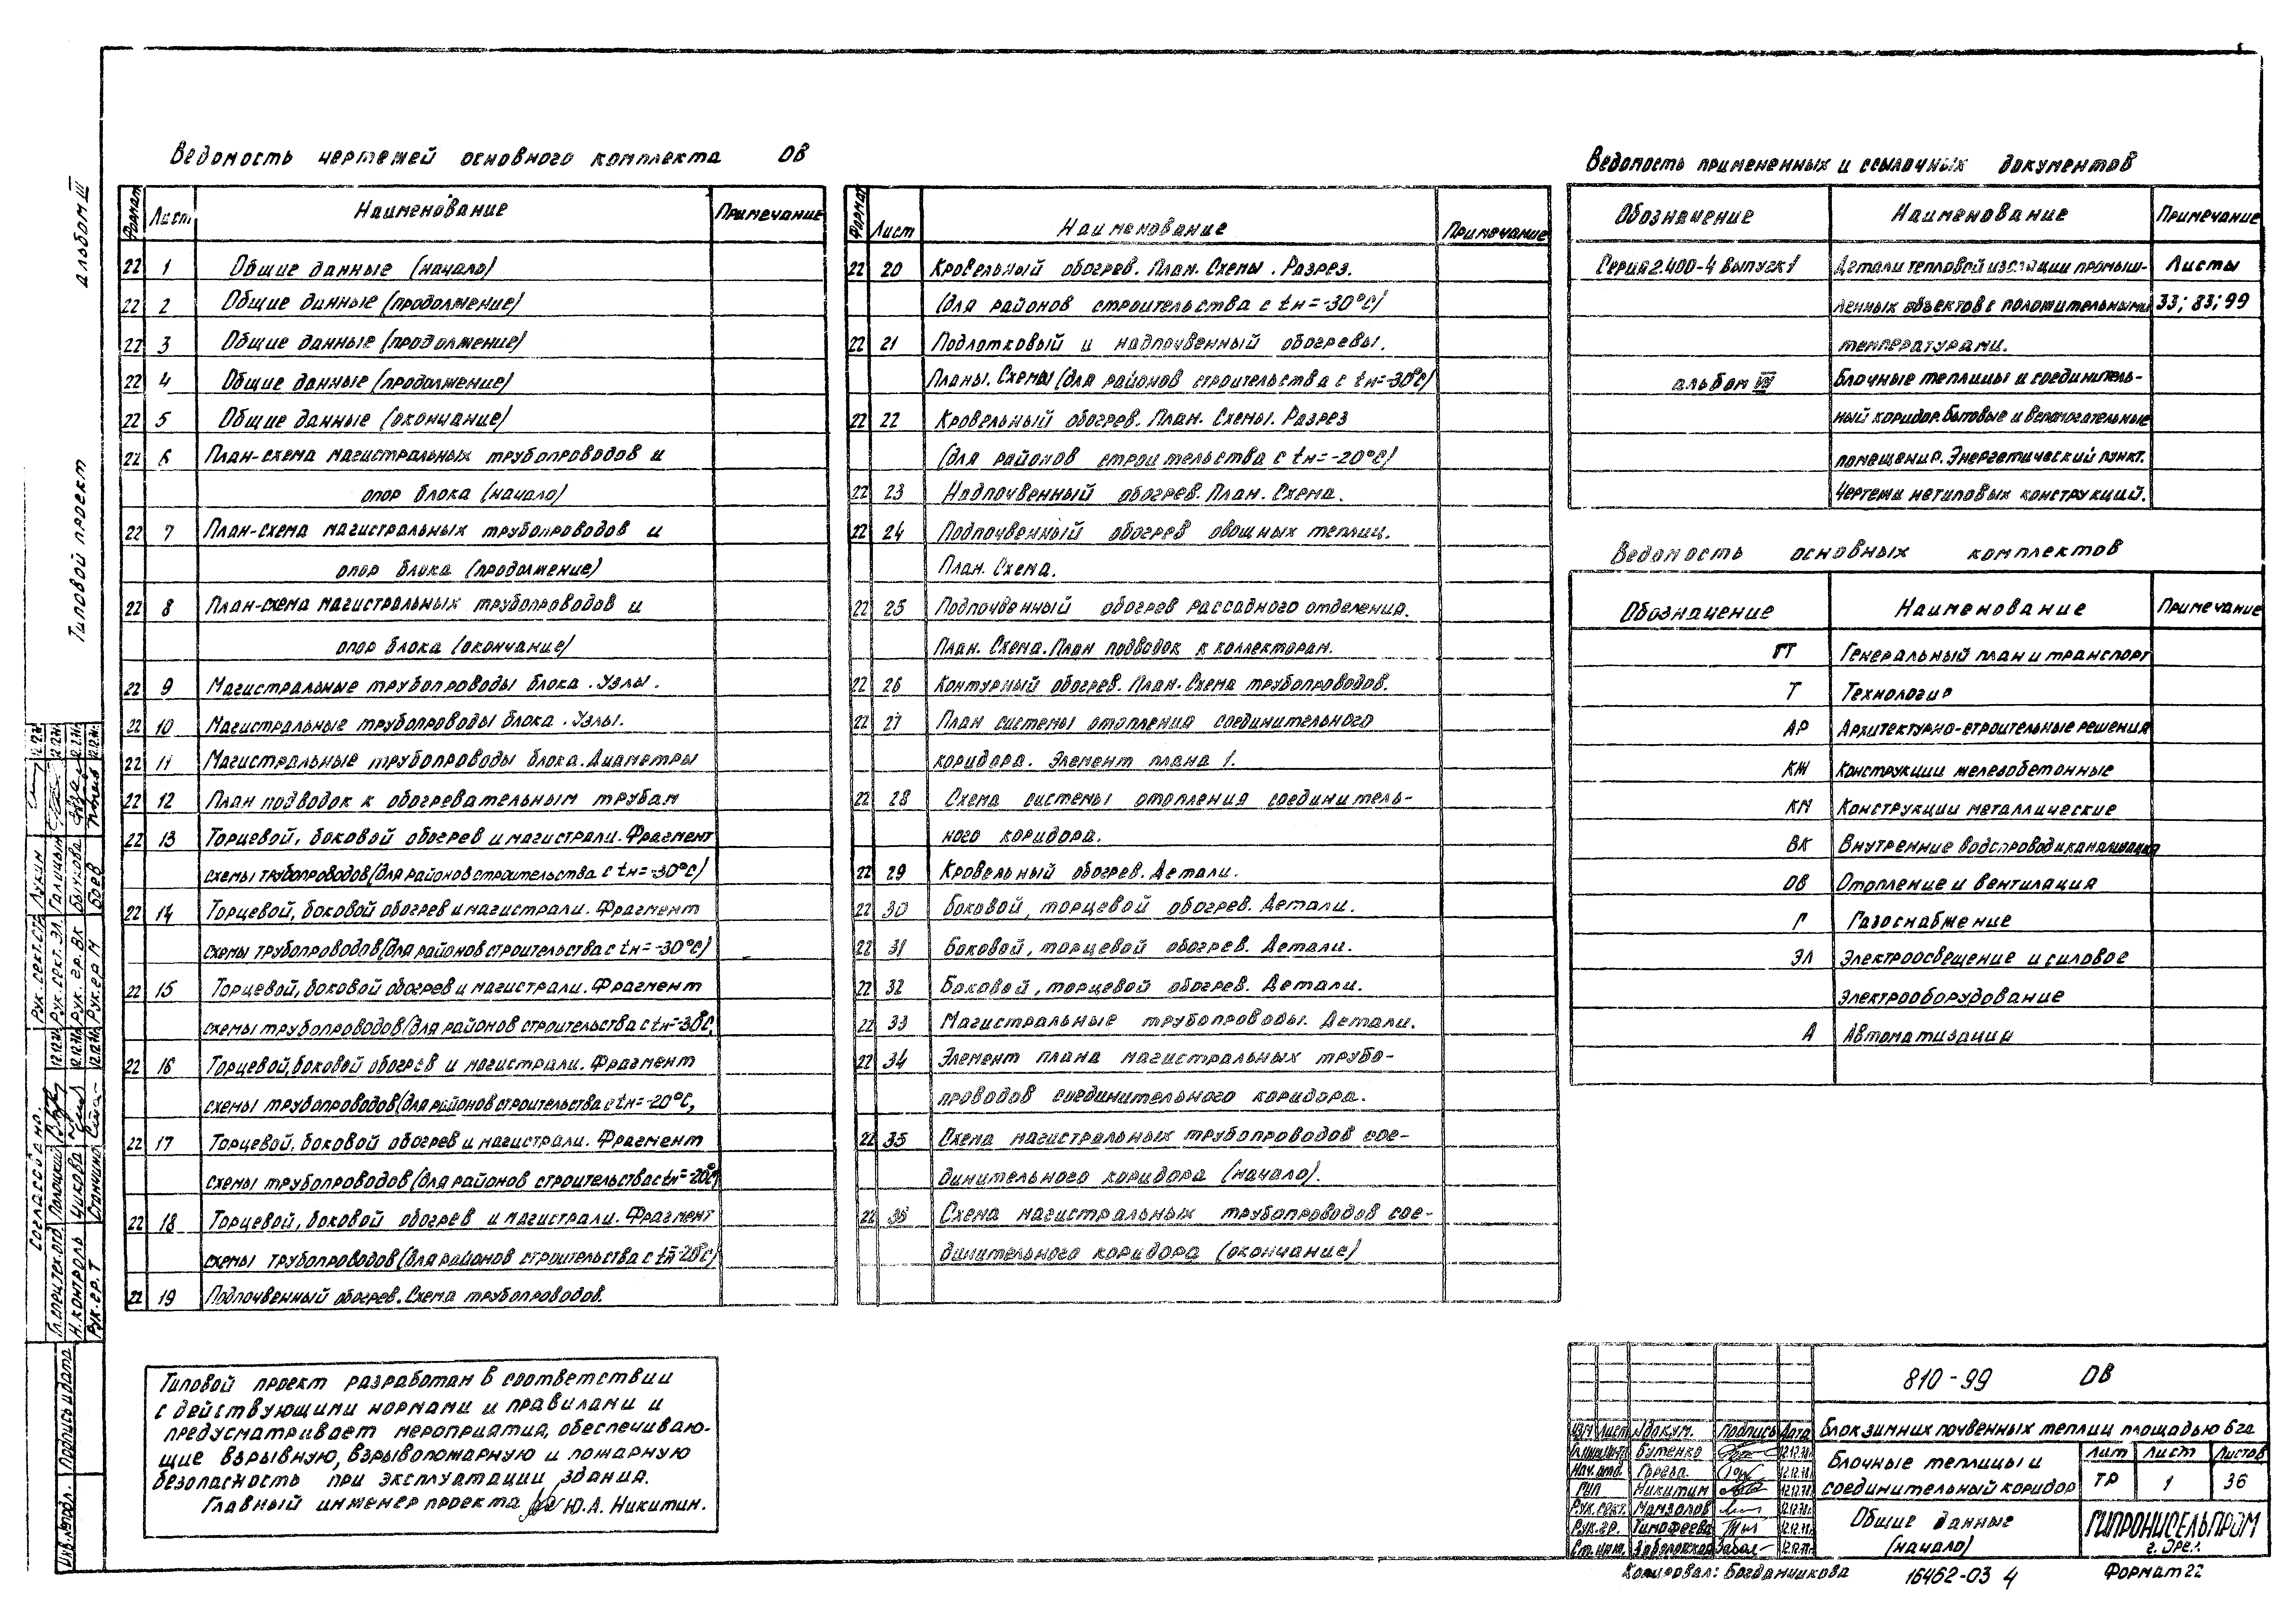 Ведомость чертежей основного комплекта ОВ
Формат Лист Наименование Примечание
22 1 Общие данные (начало)
22 2 Общие данные (продолжение)
22 3 Общие данные (продолжение)
22 4 Общие данные (продолжение)
22 5 Общие данные (окончание)
22 6 План-схема магистральных трубопроводов и
опор блока (начало)
22 7 План-схема магистральных трубопроводов и
опор блока (продолжение)
22 8 План-схема магистральных трубопроводов и
опор блока (окончание)
22 9 Магистральные трубопроводы блока. Узлы.
22 10 Магистральные трубопроводы блока. Узлы.
22 11 Магистральные трубопроводы блока. Диаметры
22 12 План подводок к обогревательным трубам
22 13 Торцевой, боковой обогрев и магистрали. Фрагмент
схемы трубопроводов (для районов строительства с tн=-30°С)
22 14 Торцевой, боковой обогрев и магистрали. Фрагмент
схемы трубопроводов (для районов строительства с tн=-30°С)
22 15 Торцевой, боковой обогрев и магистрали. Фрагмент
схемы трубопроводов (для районов строительства с tн=-30°С,
22 16 Торцевой, боковой обогрев и магистрали. Фрагмент
схемы трубопроводов (для районов строительства с tн=-20°С,
22 17 Торцевой, боковой обогрев и магистрали. Фрагмент
схемы трубопроводов (для районов строительства с tн=-20°С)
22 18 Торцевой, боковой обогрев и магистрали. Фрагмент
схемы трубопроводов (для районов строительства с tн=-20°С)
22 19 Подпочвенный обогрев. Схема трубопроводов.
Формат Лист Наименование Примечание
22 20 Кровельный обогрев. План. Схемы. Разрез.
(для районов строительства с tн=-30°С)
22 21 Подлотковый и надпочвенный обогревы.
Планы. Схемы (для районов строительства с tн=-30°С)
22 22 Кровельный обогрев. План. Схемы. Разрез
(для районов строительства с tн=-20°С)
22 23 Надпочвенный обогрев. План. Схема.
22 24 Подпочвенный обогрев овощных теплиц.
План. Схема.
22 25 Подпочвенный обогрев рассадного отделения.
План. Схема. План подводок к коллекторам.
22 26 Контурный обогрев. План. Схема трубопроводов.
22 27 План системы отопления соединительного
коридора. Элемент плана 1.
22 28 Схема системы отопления соединитель-
ного коридора.
22 29 Кровельный обогрев. Детали.
22 30 Боковой, торцевой обогрев. Детали.
22 31 Боковой, торцевой обогрев. Детали.
22 32 Боковой, торцевой обогрев. Детали.
22 33 Магистральные трубопроводы. Детали.
22 34 Элемент плана магистральных трубо-
проводов соединительного коридора.
22 35 Схема магистральных трубопроводов сое-
динительного коридора (начало).
22 36 Схема магистральных трубопроводов сое-
динительного коридора (окончание)
Ведомость примененных и ссылочных документов
Обозначение Наименование Примечание
Серия 2.400-4 выпуск 1 Детали тепловой изоляции промыш- Листы
ленных объектов с положительными 33; 83; 99
температурами.
альбом VII Блочные теплицы и соединитель-
ный коридор. Бытовые и вспомогательные
помещения. Энергетический пункт.
Чертежи нетиповых конструкций.
Ведомость основных комплектов
Обозначение Наименование Примечание
ГТ Генеральный план и транспорт
Т Технология
АР Архитектурно-строительные решения
КЖ Конструкции железобетонные
КМ Конструкции металлические
ВК Внутренние водопровод и канализация
ОВ Отопление и вентиляция
Г Газоснабжение
ЭЛ Электроосвещение и силовое
электрооборудование
А Автоматизация
Типовой проект разработан в соответствии
с действующими нормами и правилами и
предусматривает мероприятия, обеспечиваю-
щие взрывную, взрывопожарную и пожарную
безопасность при эксплуатации здания.
Главный инженер проекта Ю.А. Никитин.
810-99 ОВ
Блок зимних почвенных теплиц площадью 6 га
Изм Лист №докум. Подпись Дата
Бутенко 12.12.78
Нач. отд. Горева 12.12.78
ГИП Никитин 12.12.78
Рук. сект. Мамзолов 12.12.78
Рук. гр. Тимофеева 12.12.78
Ст. инж. Заболоцкая 12.12.78
Блочные теплицы и
соединительный коридор
Лит Лист Листов
ТР 1 36
Общие данные
(начало)
ГИПРОНИСЕЛЬПРОМ
г. Орел
Копировал: Богданчикова 16462-03 4 Формат 22
Типовой проект альбом III
Согласовано:
Гл. спец. тех. отд. Полоцкий 12.12.78
Н. контроль Чикова 12.12.78
Рук. гр. Т 12.12.78
Рук. сект. СТР Лукин
Рук. сект. ЭЛ. Галицын
Рук. гр. ВК
Рук. гр. М Боев
Инв. № подл. Подпись и дата